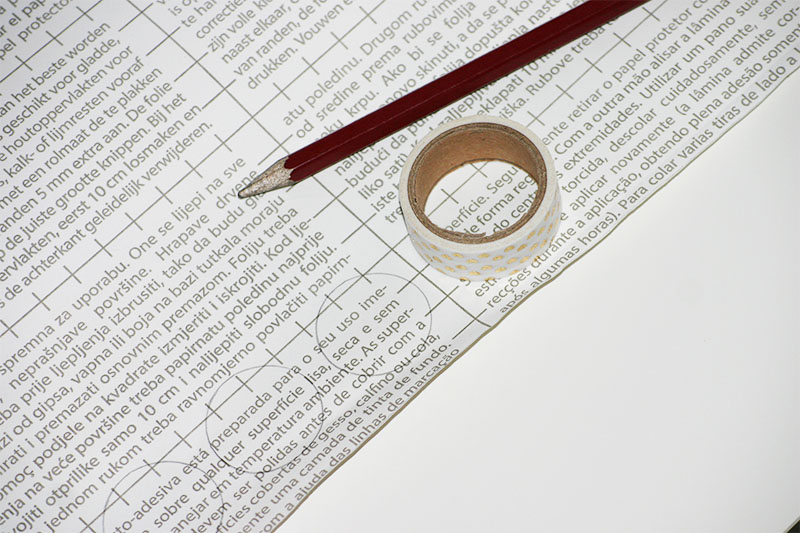 el protector.
an het beste worden
geschikt voor gladde,
houtoppervlakten voor
kalk- of lijmresten vooraf
met een rolmaat de te plakken
nden 5 mm extra aan. De folie
de juiste grootte knippen. Bij het
ervlakten, eerst 10 cm losmaken en
s de achterkant geleidelijk verwijderen.
te ha
correctie
zijn volle kl
naast elkaar,
van randen, de
drukken. Vouwen e
spremna za uporabu. One se lijepi na sve
neprašnjave površine. Hrapave drve
eba prije lijepljenja izbrusiti, tako da budu g
zi od gipsa, vapna ili boja na bazi tutkala moraju
irati i premazati osnovnim premazom. Foliju treba
omoć podjele na kvadrate izmjeriti i iskrojiti. Kod lije-
nja na veće površine treba papirnatu poledinu najprije
vojiti otprilike samo 10 cm i nalijepiti slobodnu foliju.
jednom rukom treba ravnomjerno povlačiti papirn-
atu poledinu. Drugom ru
od sredine prema rubovima
krpu. Ako bi se folija
ovo skinuti, a da se
budući da p
naljepljivanja
liko sati
klapati 10 m
ška. Rubove treba
to-adesiva está preparada para o seu uso ime-
sobre qualquer superfície lisa, seca e sem
anejar em temperatura ambiente. As super-
evem ser polidas antes de cobrir com a
fícies cobertas de gesso, calfino ou cola,
ente uma camada de tinta de fundo.
com a ajuda das linhas de marcação
erfície. Segu
ente retirar o papel protetor co
de forma reg
Com a outra mão alisar a lâmina
do centro
extremidades. Utilizar um pano sua
torcida, descolar cuidadosamente, sem
aplicar novamente (a lâmina admite cor-
recções durante a aplicação, obtendo plena adesão somen
após algumas horas). Para colar várias tiras de lado a l